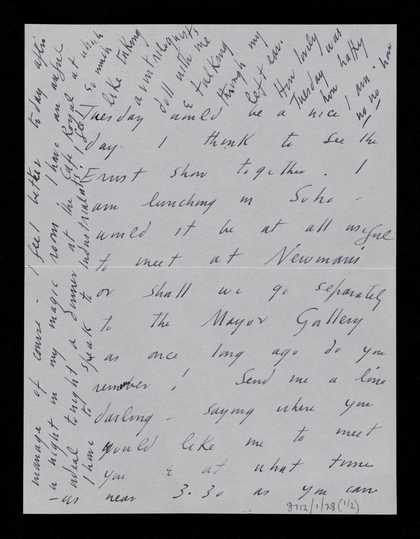 Tuesday would be a nice
day. I think to see the
Ernst show together. I
am lunching in Soho -
would it be at all useful
to meet at Newman's
or shall we go separately
to the Mayor Gallery
as once long ago do you
remember! Send me a line
darling - saying where you
would like me to meet
you & at what time
- as near 3.30 as you can
manage of course. I feel better today after
a night in my magic room. I have an awful
ordeal tonight a dinner at the Café Royal at which
I have to speak to industrialists! So much
like taking
a ventriloquist's
doll with me
& talking
through my
left ear.
How lovely
Tuesday was
how happy
I am.
no no how
8712/1/28 (1/2)